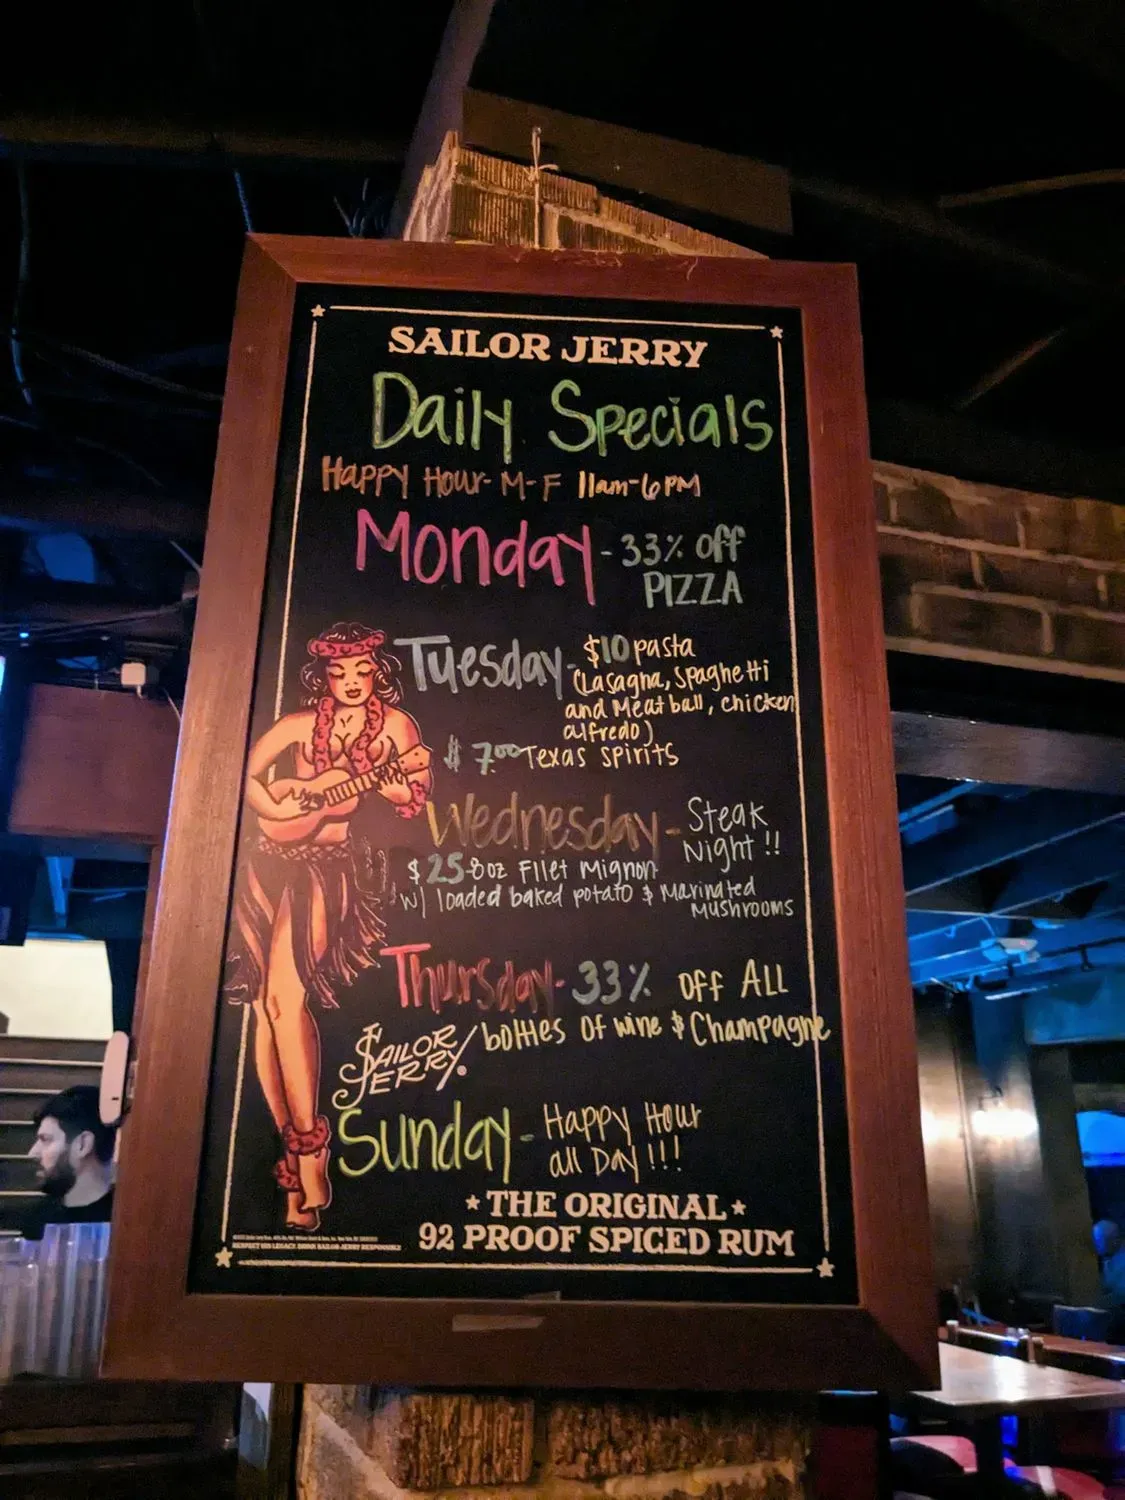 SAILOR JERRY
Daily Specials
Happy Hour- M-F 11am-6PM
Monday - 33% off
PIZZA
Tuesday - $10 pasta
(Lasagna, spaghetti
and Meatball, chicken
alfredo)
$ 7.00 Texas spirits
Wednesday - Steak
Night!!
$25 - 8oz Filet Mignon
w/ loaded baked potato & Marinated
Mushrooms
Thursday - 33% off All
bottles of wine & Champagne
SAILOR
JERRY
Sunday - Happy Hour
all Day!!!
THE ORIGINAL
92 PROOF SPICED RUM